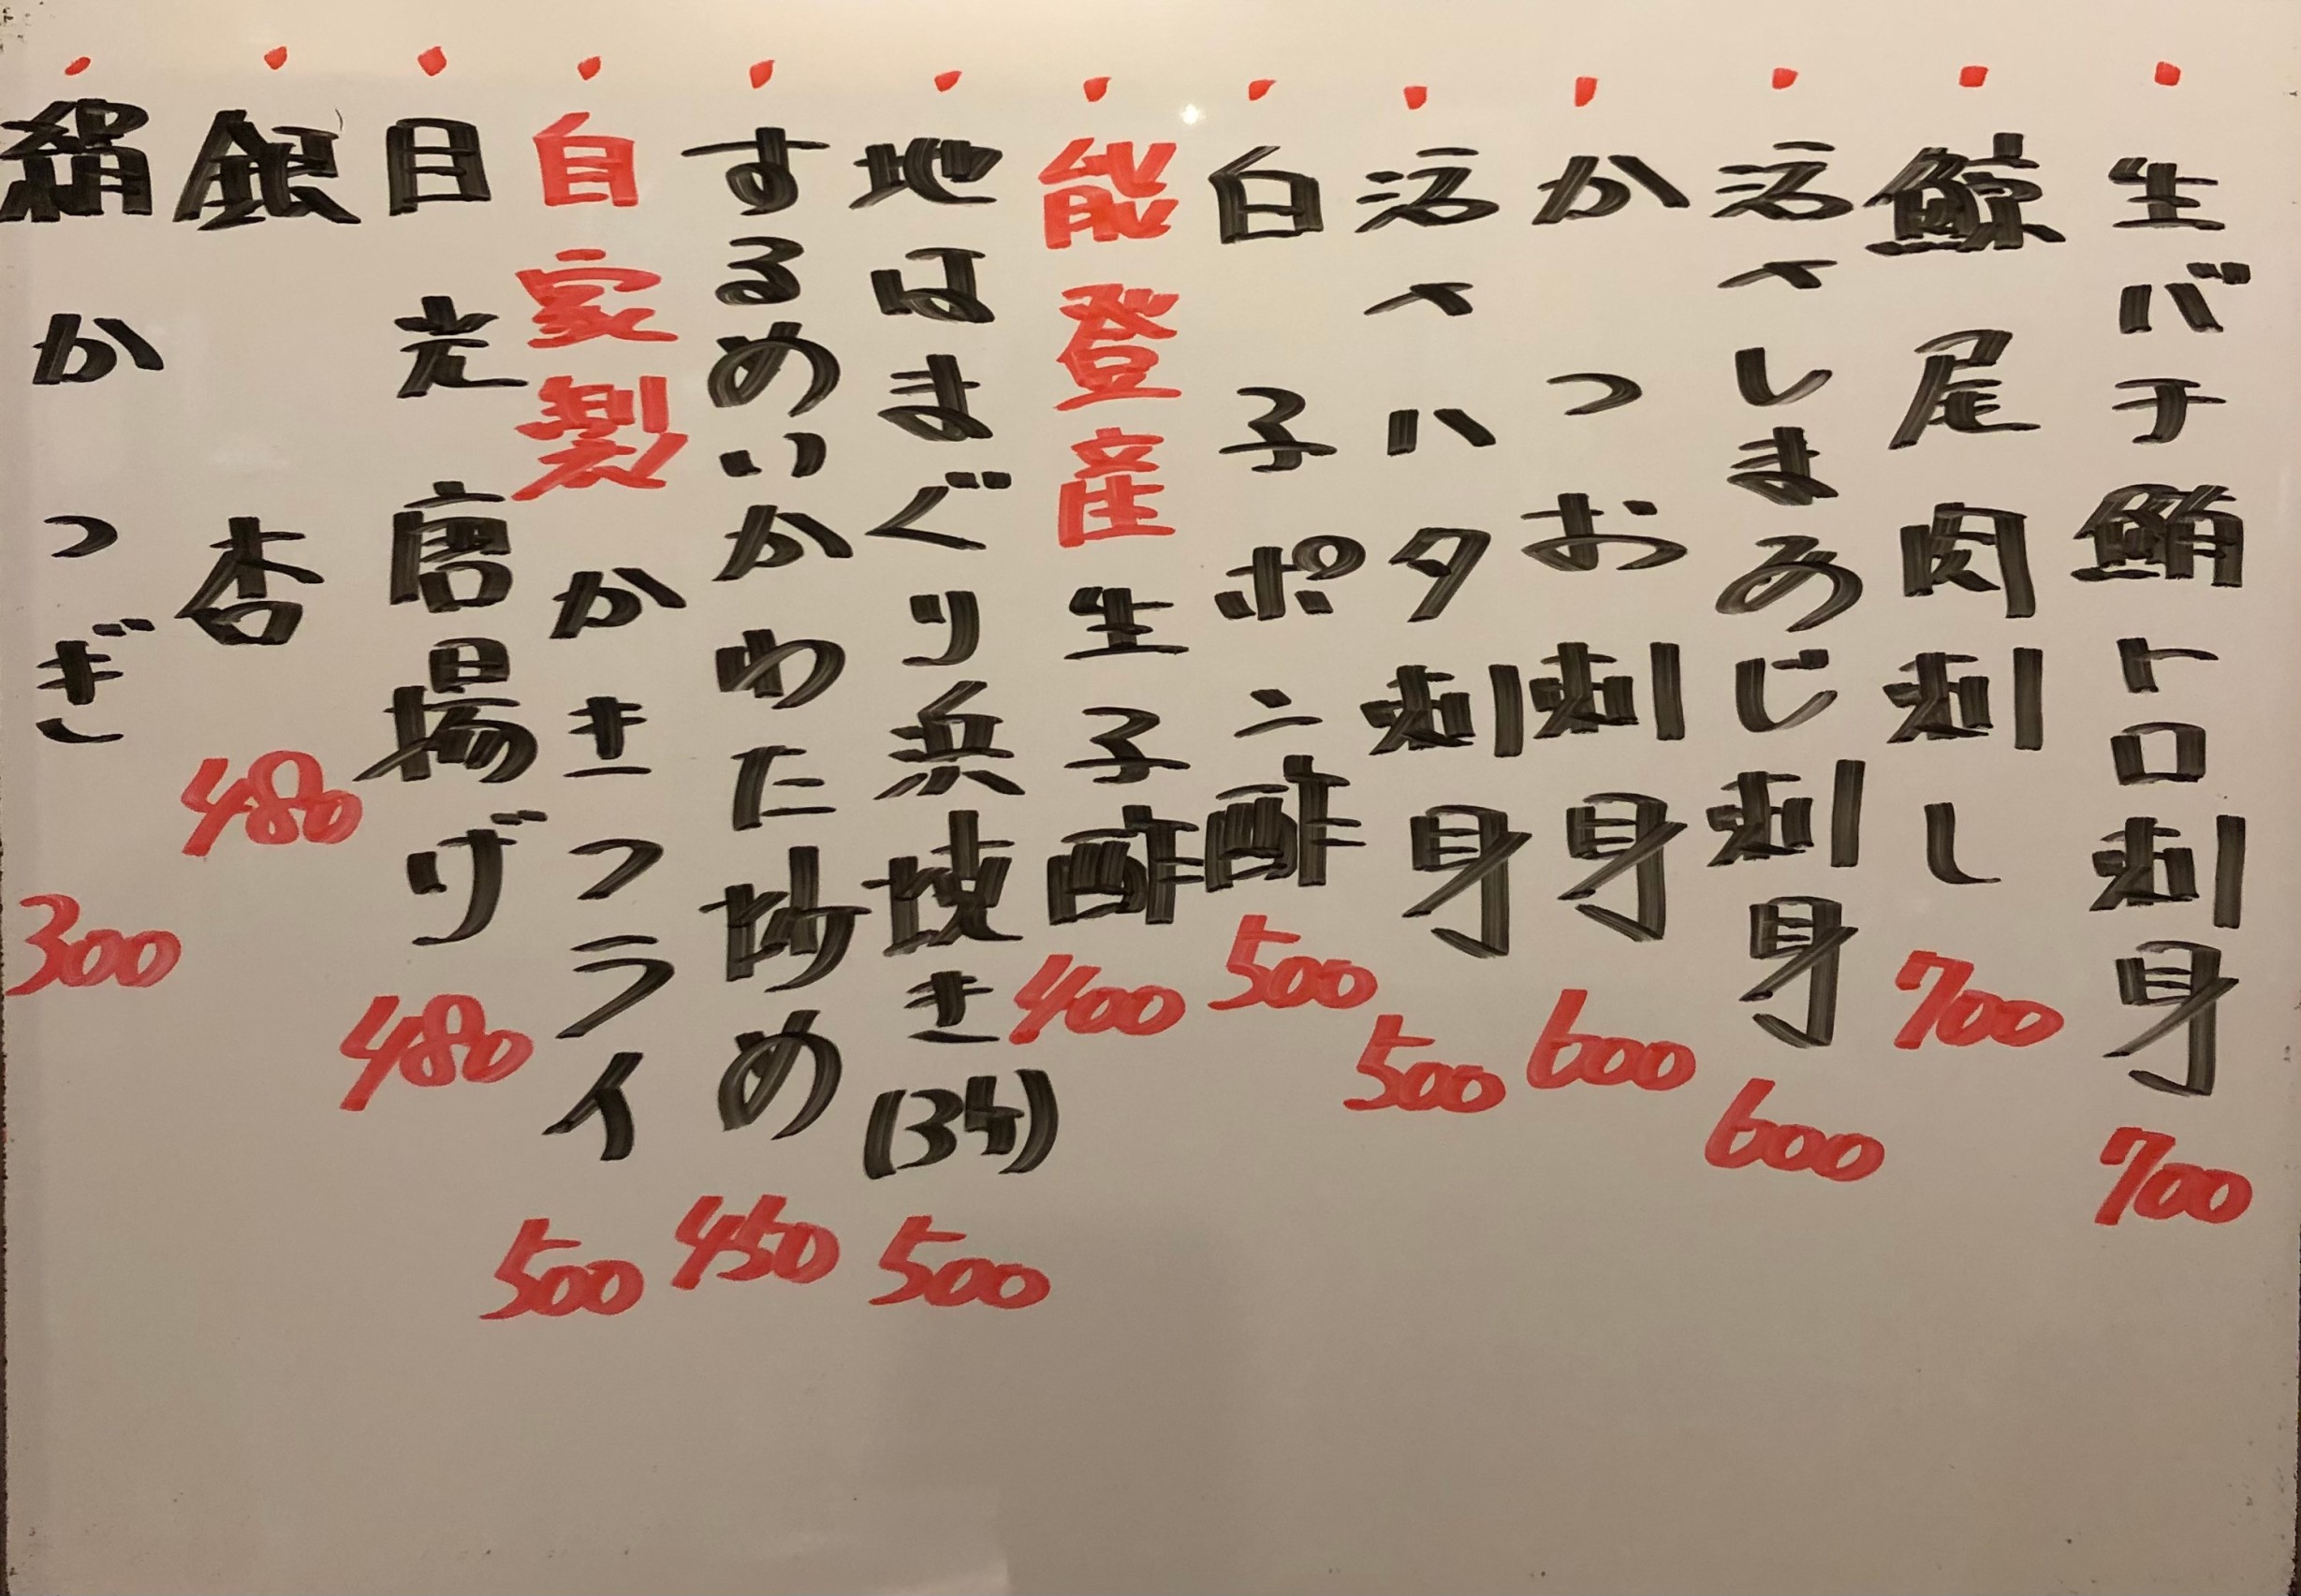 生バチ鮪トロ刺身 700
鯨尾肉刺し 700
活〆しまあじ刺身 600
かつお刺身 600
活〆ハタ刺身 500
白子ポン酢 500
能登産生子酢 400
地はまぐり浜焼き 500
するめいかわた炒め 450
自家製かきフライ 500
目光唐揚げ 480
銀杏 480
絹かつぎ 300